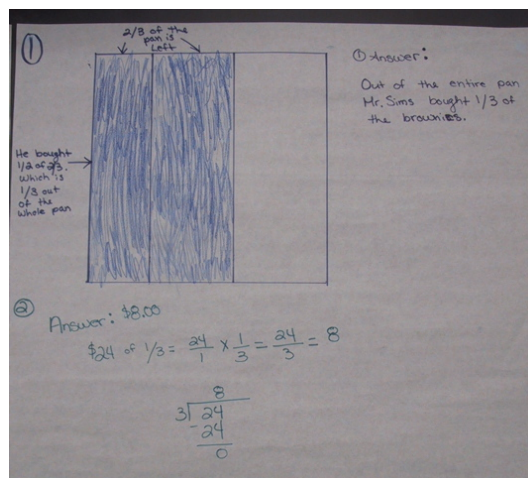 ①
2/3 of the
pan is
Left
He bought
1/2 of 2/3.
Which is
1/3 out
of the
whole pan
① Answer:
Out of the entire pan
Mr. Sims bought 1/3 of
the brownies.
②
Answer: $8.00
$24 of 1/3 = 24/1 × 1/3 = 24/3 = 8
8
3⟌24
-24
0